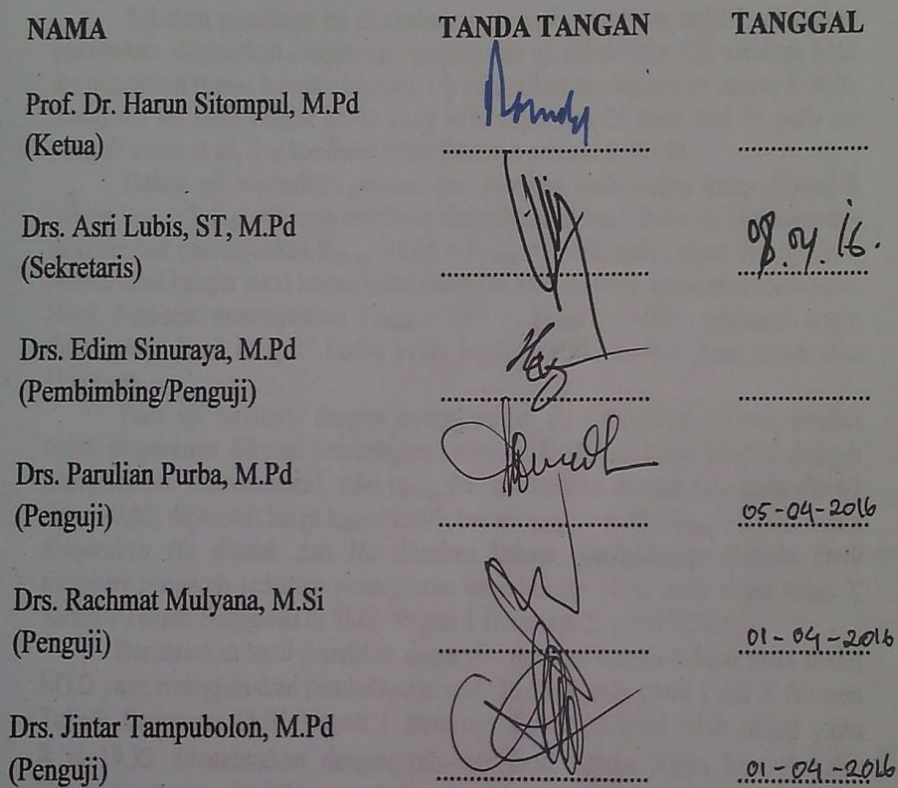 NAMA TANDA TANGAN TANGGAL
Prof. Dr. Harun Sitompul, M.Pd
(Ketua)
Drs. Asri Lubis, ST, M.Pd 08.04.16.
(Sekretaris)
Drs. Edim Sinuraya, M.Pd
(Pembimbing/Penguji)
Drs. Parulian Purba, M.Pd
(Penguji) 05-04-2016
Drs. Rachmat Mulyana, M.Si
(Penguji) 01-04-2016
Drs. Jintar Tampubolon, M.Pd
(Penguji) 01-04-2016